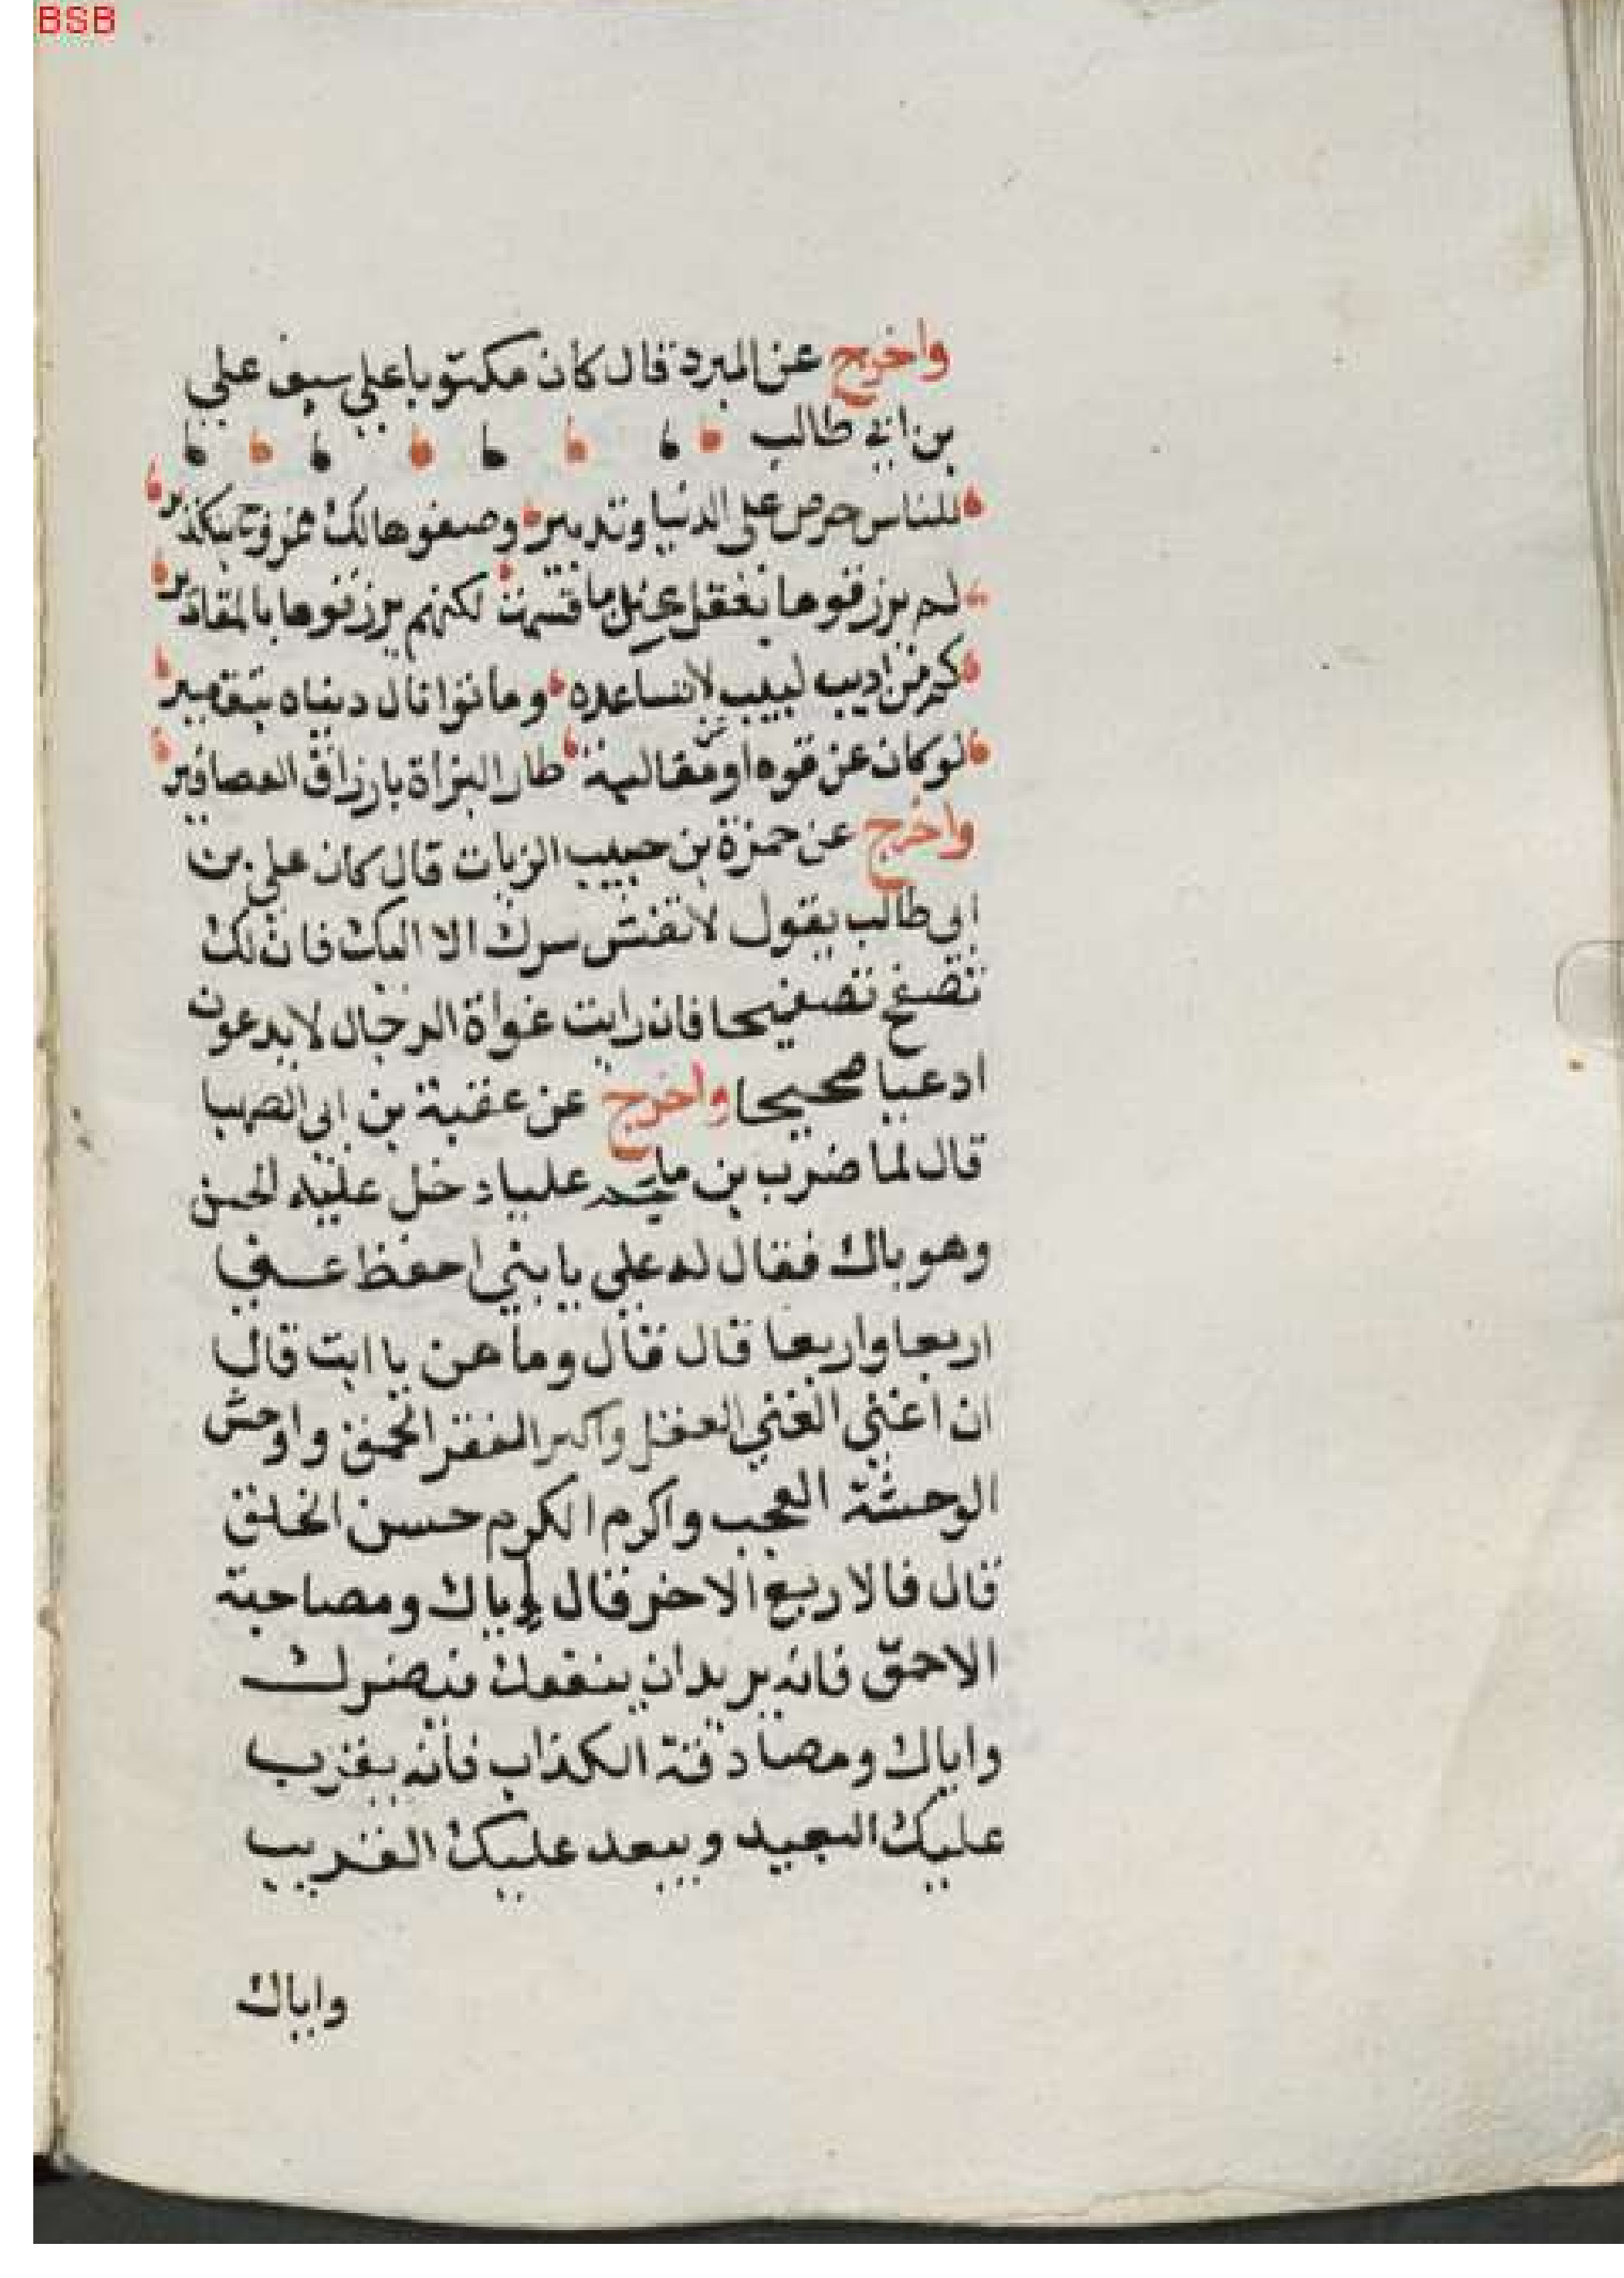 BSB
واخرج عن المبرد قال كان مكتوبا على سيف علي
بن ابي طالب
للناس حرص على الدنيا وتدبير وصفوها لك ممزوج بتكذير
لم يرزقوها بعقل حين ما قسمت لكنهم يرزقوها بالمقادير
كم من اديب لبيب لا تساعده ومانوا نال دنياه بتقصير
لو كان عن قوه او عن مغالبة طار البزاة بارزاق العصافير
واخرج عن حمزة بن حبيب الزيات قال كان علي بن
ابي طالب يقول لا تفش سرك الا اليك فان لك
نصيح نصيحا فان رايت غواة الرجال لا يدعون
اديما صحيحا واخرج عن عقبة بن ابي الصهبا
قال لما ضرب بن ملجم عليا دخل عليه الحسن
وهو باك فقال له علي يا بني احفظ عني
اربعا واربعا قال قال وما هن يا ابت قال
ان اغنى الغني العقل واكبر الفقر الحمق واوحش
الوحشة العجب واكرم الكرم حسن الخلق
قال فالاربع الاخر قال اياك ومصاحبة
الاحمق فانه يريد ان ينفعك فيضرك
واياك ومصادقة الكذاب فانه يقرب
عليك البعيد ويبعد عليك القريب
واياك